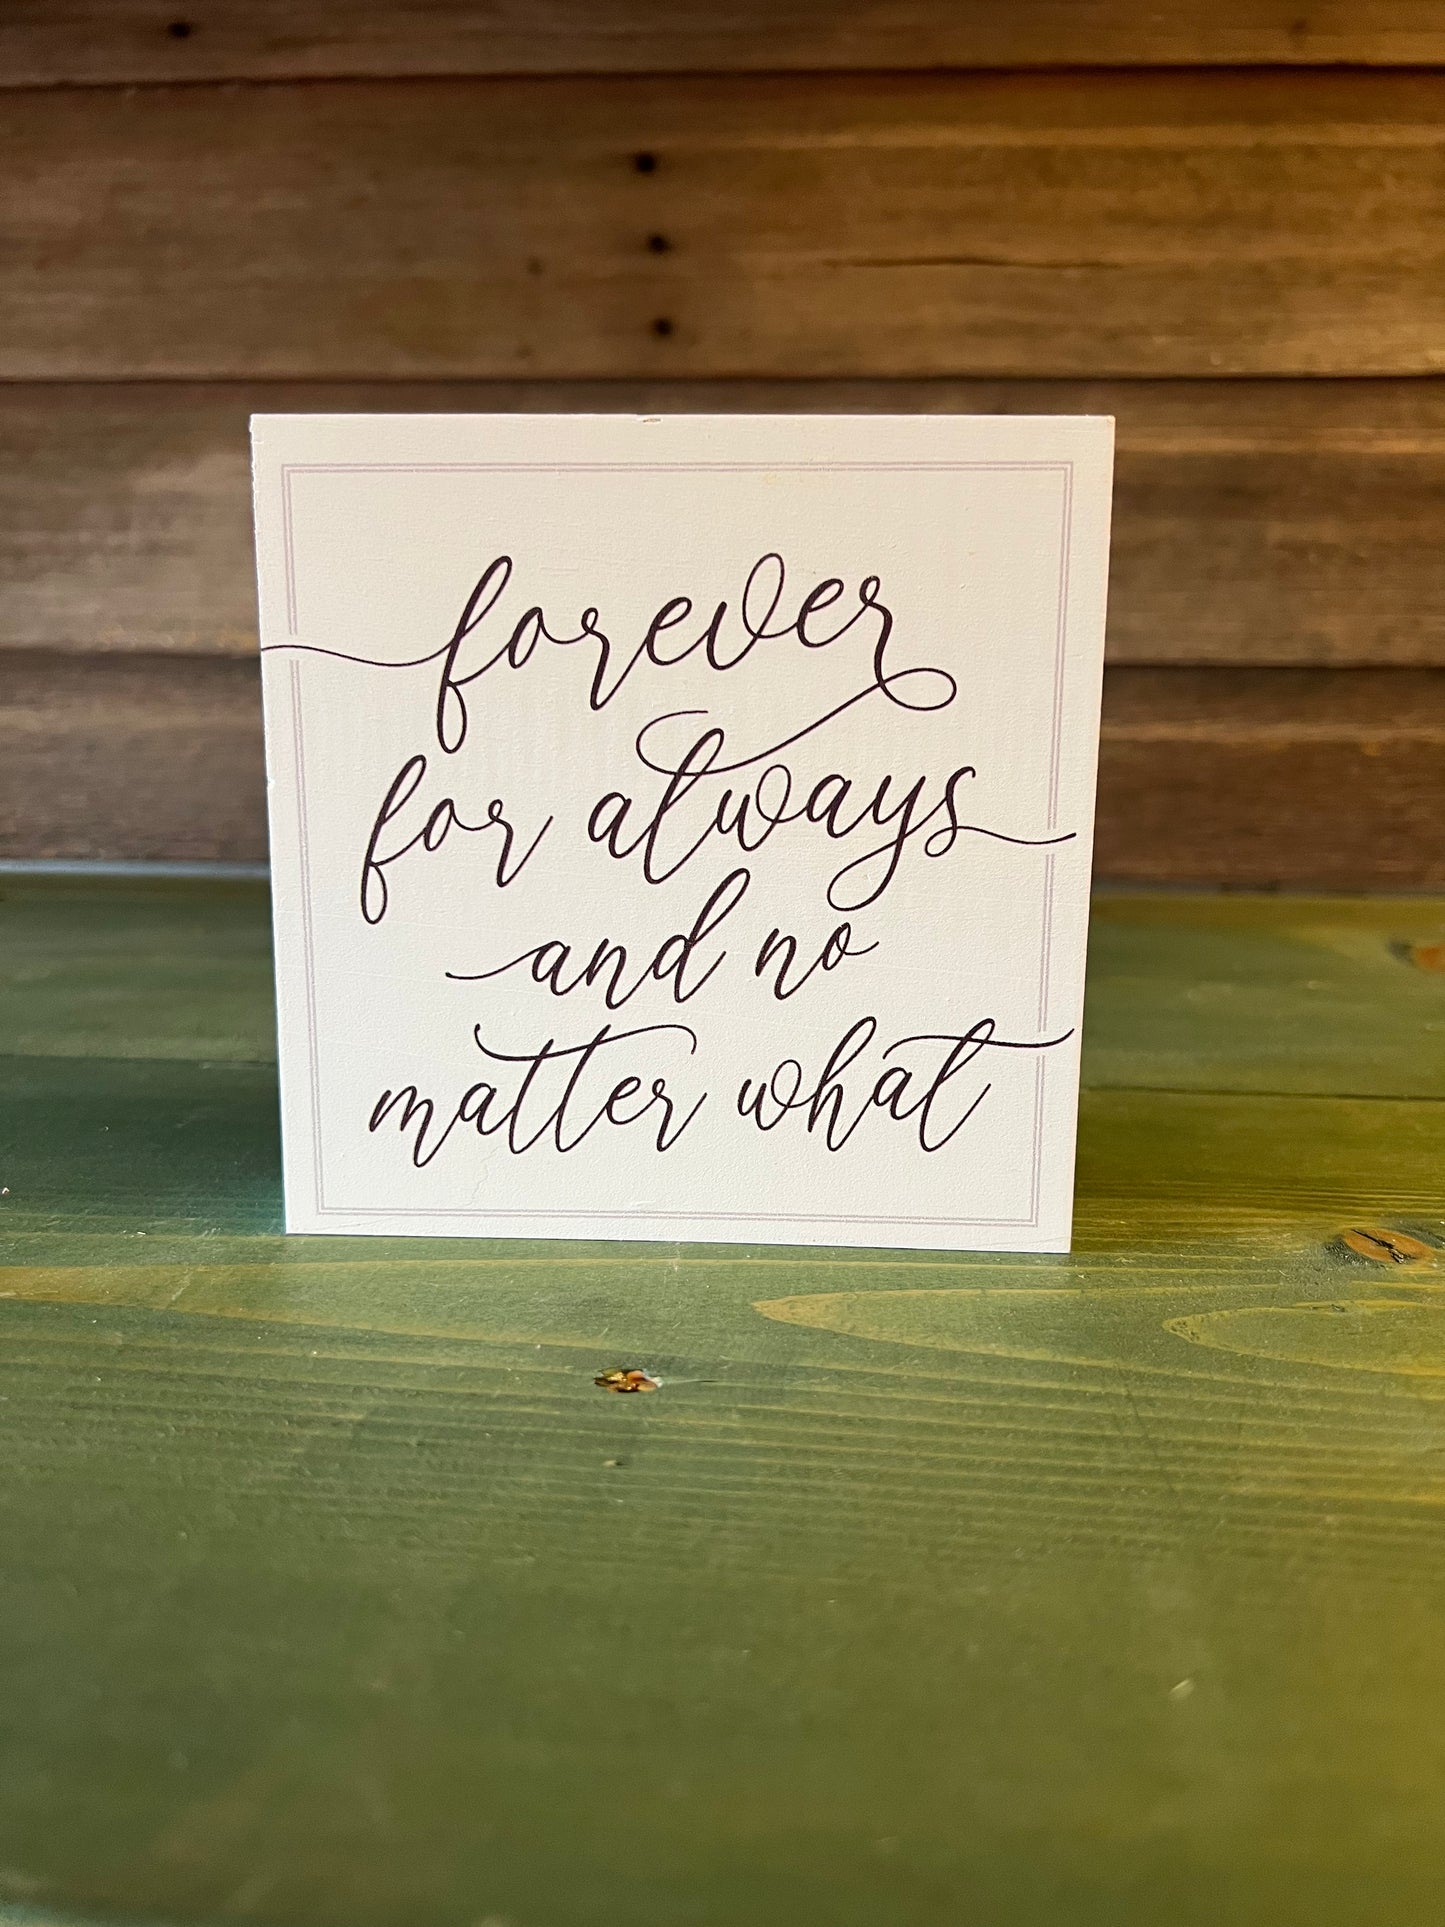 forever
for always
and no
matter what